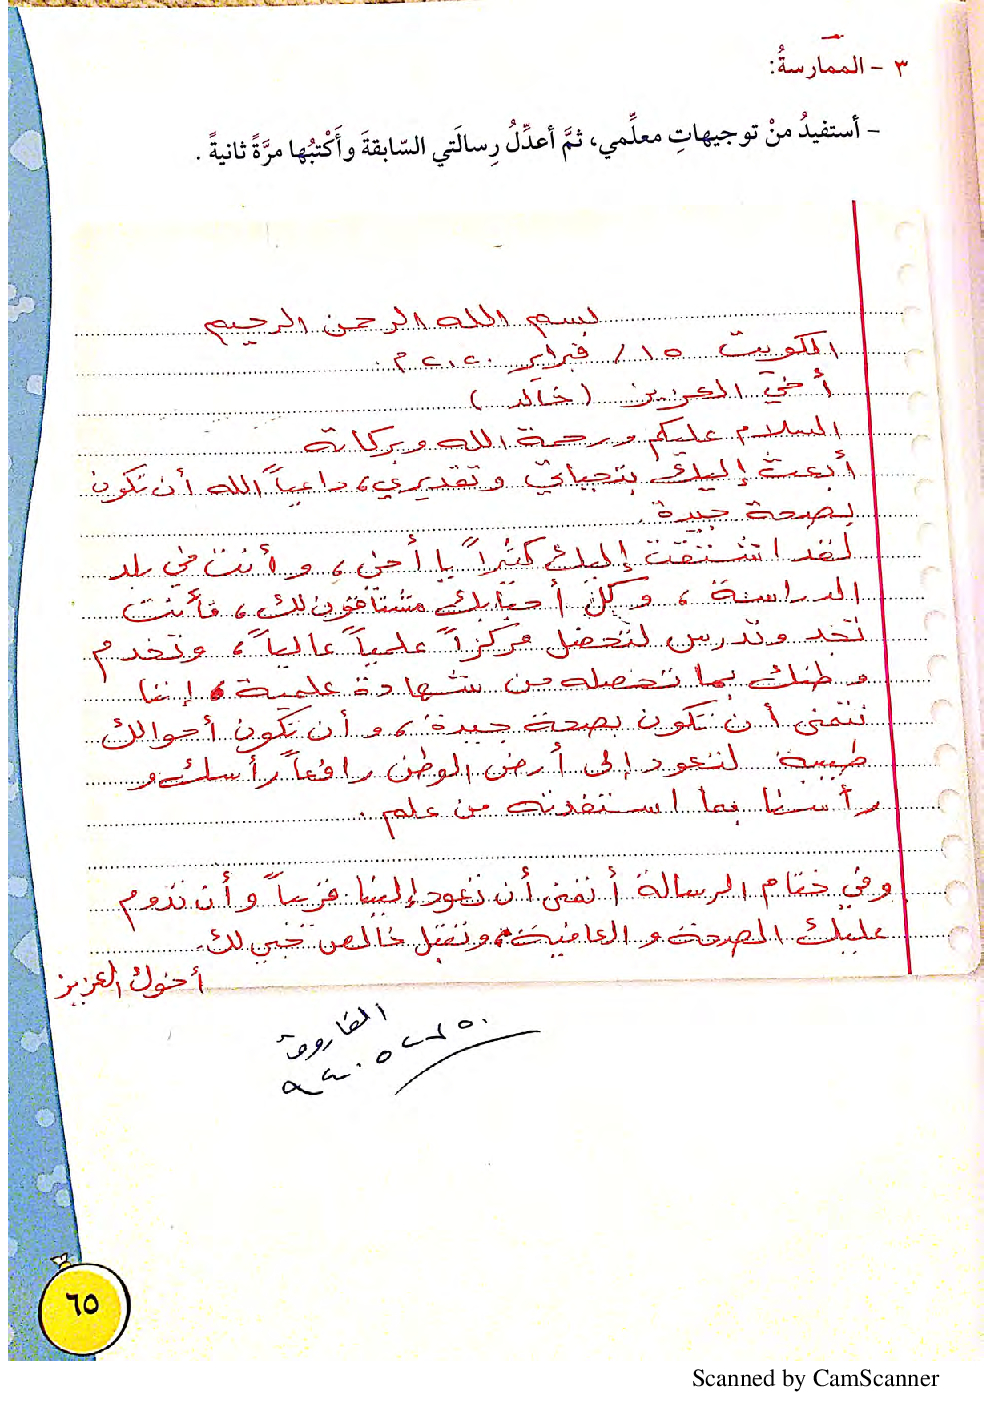 ٣ - الممارسةُ:
- أستفيدُ منْ توجيهاتِ معلِّمي، ثمَّ أعدِّلُ رِسالَتي السّابقةَ وأَكْتبُها مرَّةً ثانيةً .
بسم الله الرحمن الرحيم
الكويت ١٥/ فبراير ٢٠٢٠م.
أخي العزيز (خالد)
السلام عليكم ورحمة الله وبركاته
أبعث إليك بتحياتي وتقديري، داعياً الله أن تكون
بصحة جيدة.
لقد اشتقت إليك كثيراً يا أخي، وأنت في بلد
الدراسة، وكل أحبابك مشتاقون لك، فأنت
تجد وتدرس لتحصل مركزاً علمياً عالياً، وتخدم
وطنك بما تحصله من شهادة علمية، إننا
نتمنى أن تكون بصحة جيدة، وأن تكون أحوالك
طيبة لتعود إلى أرض الوطن رافعاً رأسك و
رأسنا بما استفدته من علم.
وفي ختام الرسالة أتمنى أن تعود إلينا قريباً وأن تدوم
عليك الصحة والعافية، وتقبل خالص حبي لك.
أخوك العزيز
الفاروق
٦٥
Scanned by CamScanner